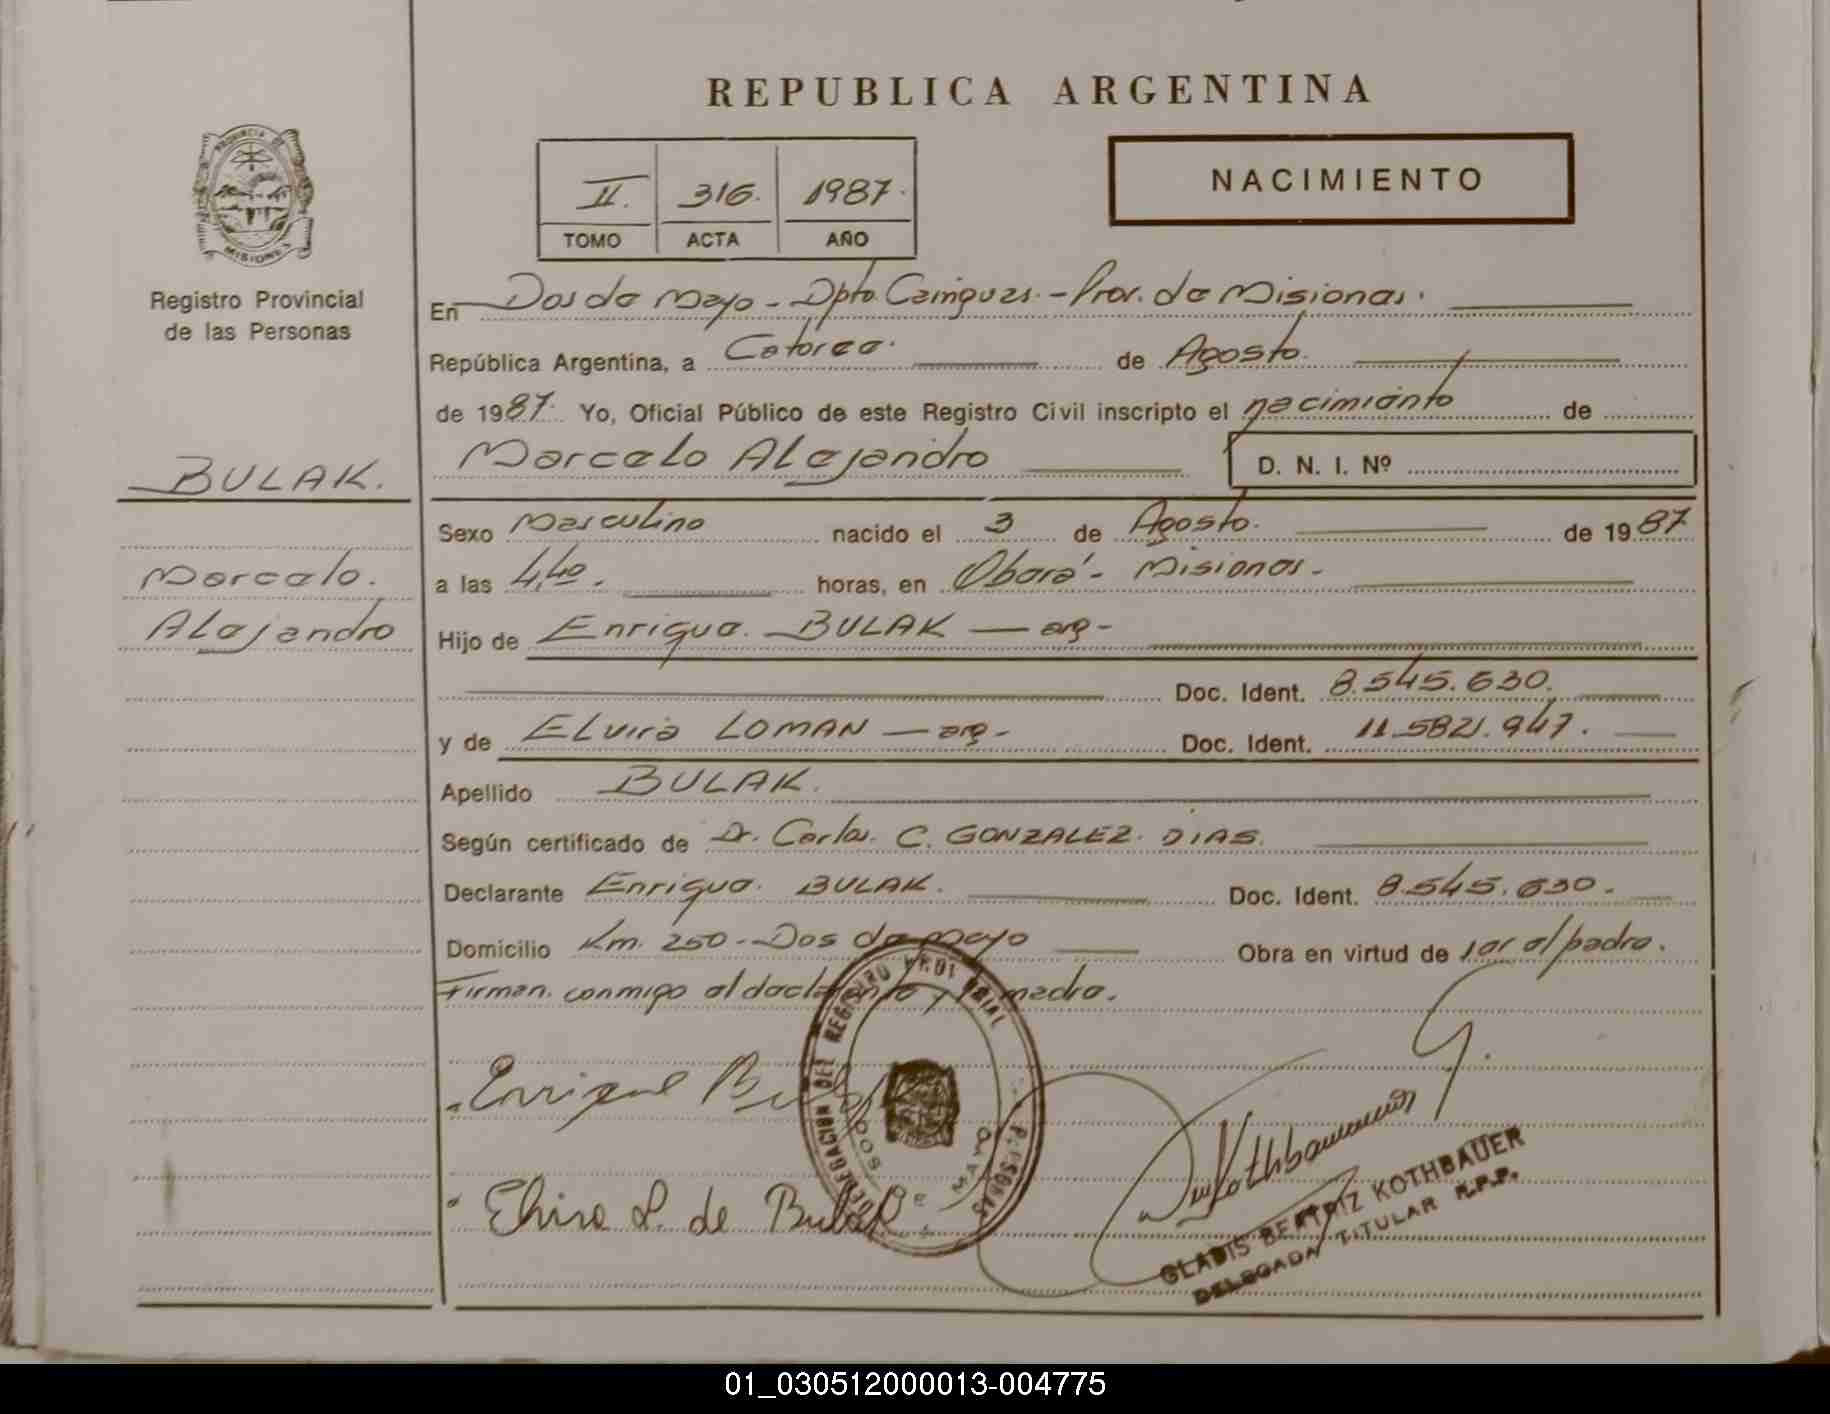 REPUBLICA ARGENTINA
PROVINCIA DE
MISIONES
Registro Provincial
de las Personas
II. 316. 1987.
TOMO ACTA AÑO
NACIMIENTO
En Dos de Mayo - Dpto. Cainguas. - Prov. de Misiones.
República Argentina, a Catorce. de Agosto.
de 1987. Yo, Oficial Público de este Registro Civil inscripto el nacimiento de
Marcelo Alejandro
D. N. I. Nº
BULAK.
Marcelo.
Alejandro
Sexo Masculino nacido el 3 de Agosto. de 1987
a las 4,40. horas, en Oberá - Misiones -
Hijo de Enrique. BULAK — arg -
Doc. Ident. 8.545.630.
y de Elvira LOMAN — arg - Doc. Ident. 11.5821.947.
Apellido BULAK.
Según certificado de Dr. Carlos. C. GONZALEZ. DIAS.
Declarante Enrique. BULAK. Doc. Ident. 8.545.630.
Domicilio Km. 250 - Dos de Mayo Obra en virtud de ser el padre.
Firman. conmigo el declarante y la madre.
DELEGACION DEL REGISTRO PROVINCIAL
DE PERSONAS
DOS DE MAYO
Enrique Bulak
Elvira L. de Bulak
Kothbauer
GLADIS BEATRIZ KOTHBAUER
DELEGADA TITULAR R.P.P.
01_030512000013-004775